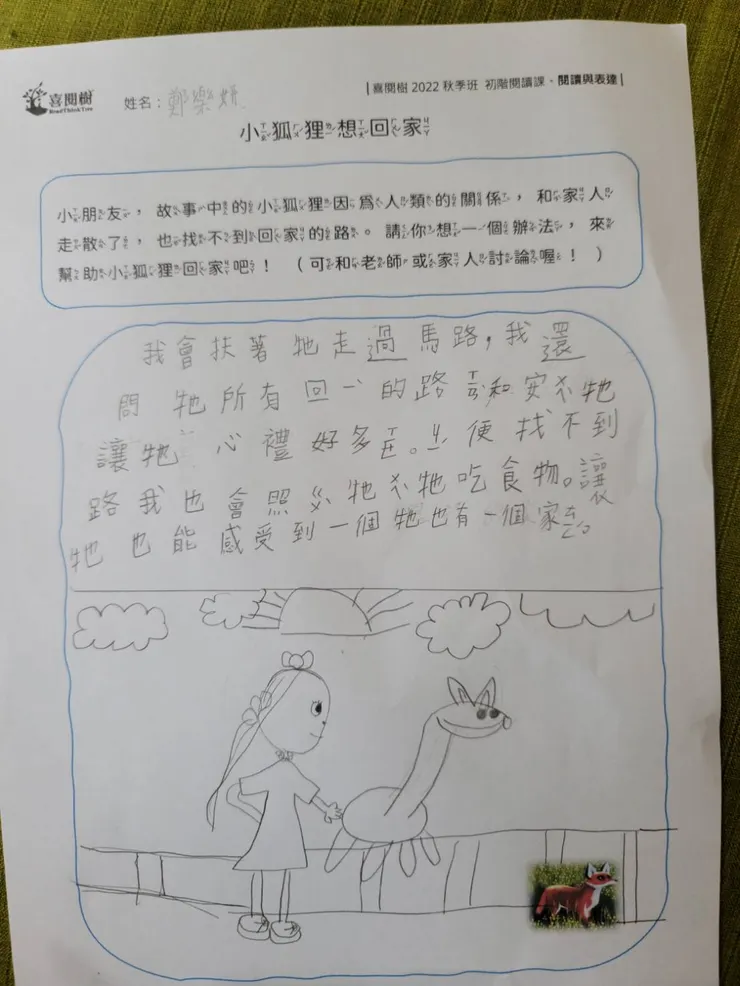 喜閱樹
ReadThinkTree
姓名：鄭樂妍
｜喜閱樹 2022 秋季班 初階閱讀課、閱讀與表達｜
小狐狸想回家
小朋友，故事中的小狐狸因為人類的關係，和家人
走散了，也找不到回家的路。請你想一個辦法，來
幫助小狐狸回家吧！（可和老師或家人討論喔！）
我會扶著牠走過馬路，我還
問牠所有回ㄧˋ的路 和安ㄨㄟˋ牠
讓牠心禮好多ㄓㄜ˙。ㄐㄧˋ便找不到
路我也會照ㄍㄨˋ牠ㄨㄟˋ牠吃食物。讓
牠也能感受到一個牠也有一個家